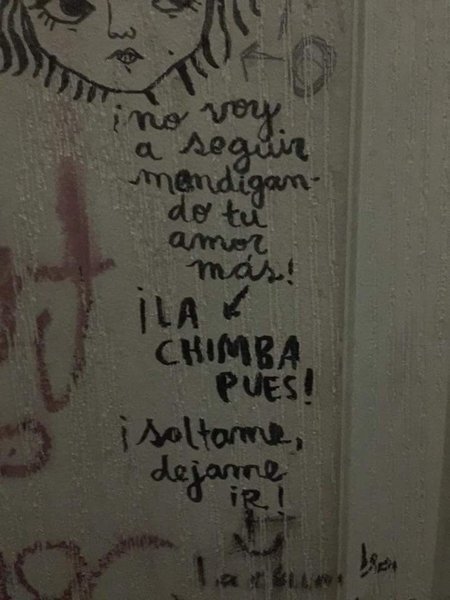 ¡no voy
a seguir
mendigan-
do tu
amor
más!
¡LA
CHIMBA
PUES!
¡soltame,
dejame
iR!